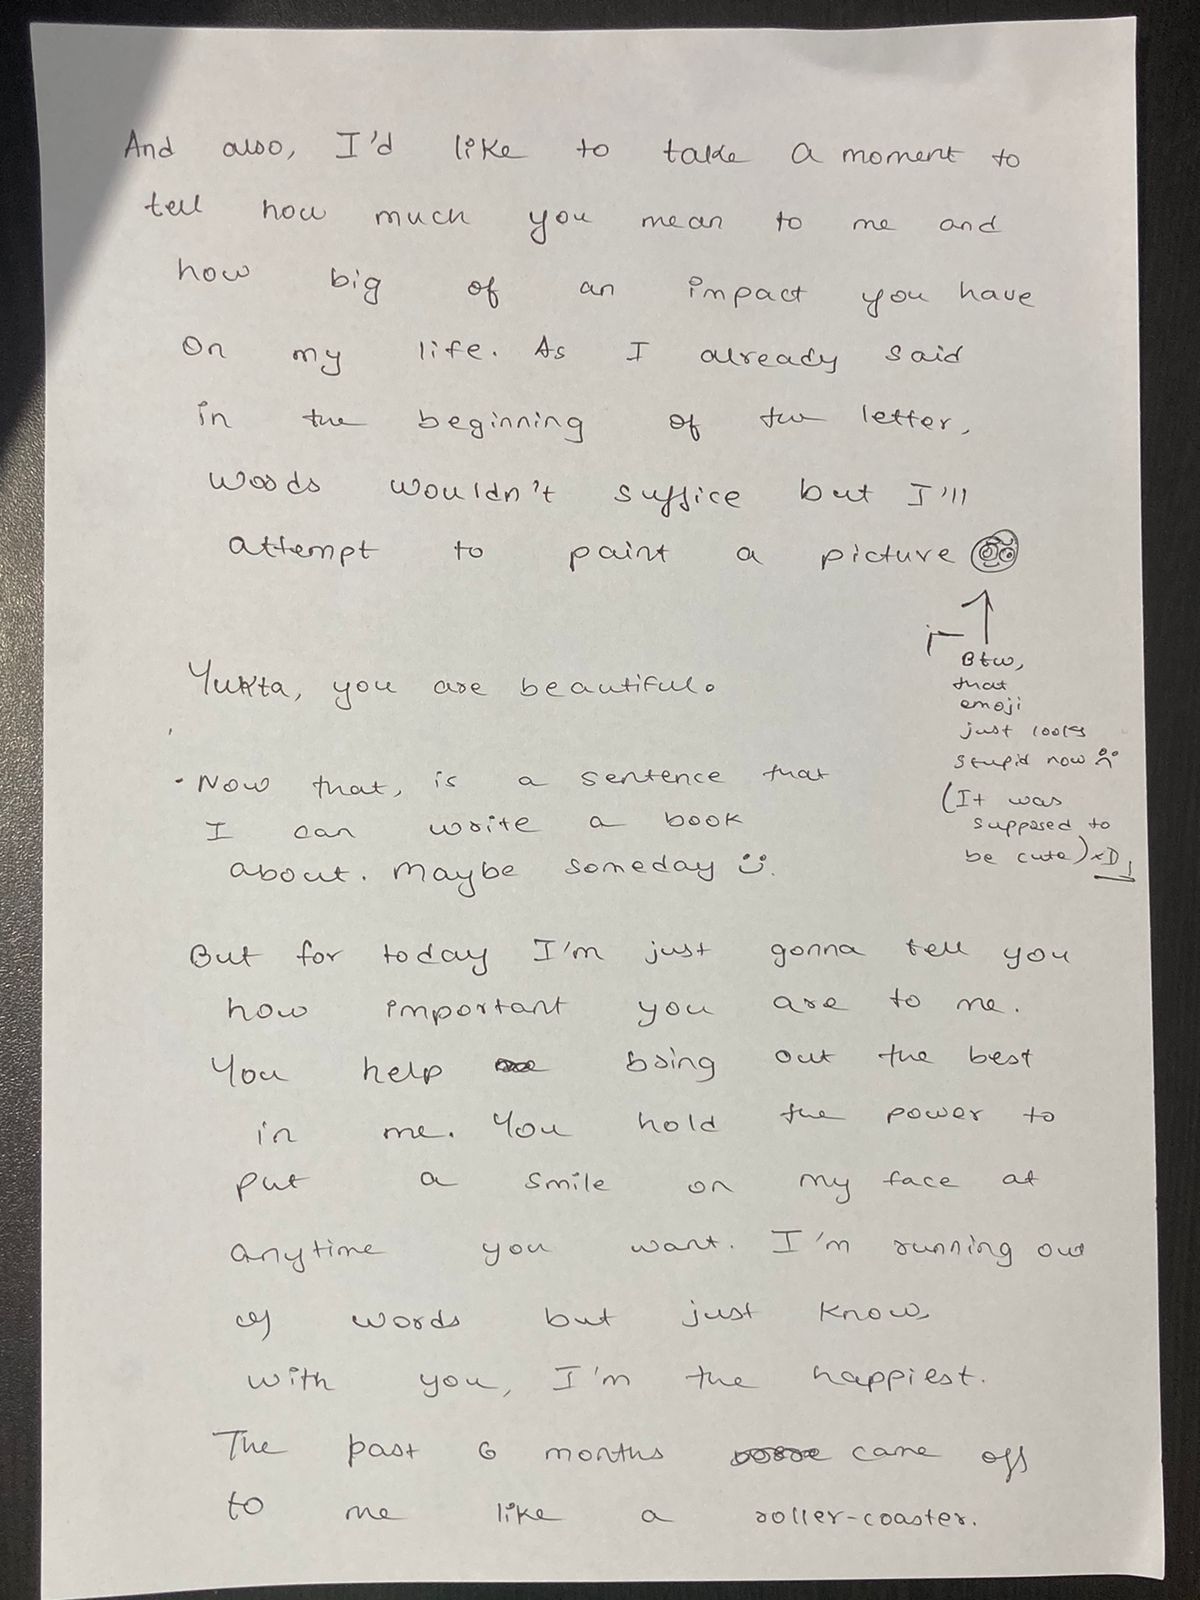 And also, I'd like to take a moment to
tell how much you mean to me and
how big of an impact you have
on my life. As I already said
in the beginning of the letter,
words wouldn't suffice but I'll
attempt to paint a picture
Btw,
that
emoji
just looks
stupid now :(
(It was
supposed to
be cute) xD
Yukta, you are beautiful.
- Now that, is a sentence that
I can write a book
about. Maybe someday :).
But for today I'm just gonna tell you
how important you are to me.
You help bring out the best
in me. You hold the power to
put a smile on my face at
anytime you want. I'm running out
of words but just know,
with you, I'm the happiest.
The past 6 months came off
to me like a roller-coaster.